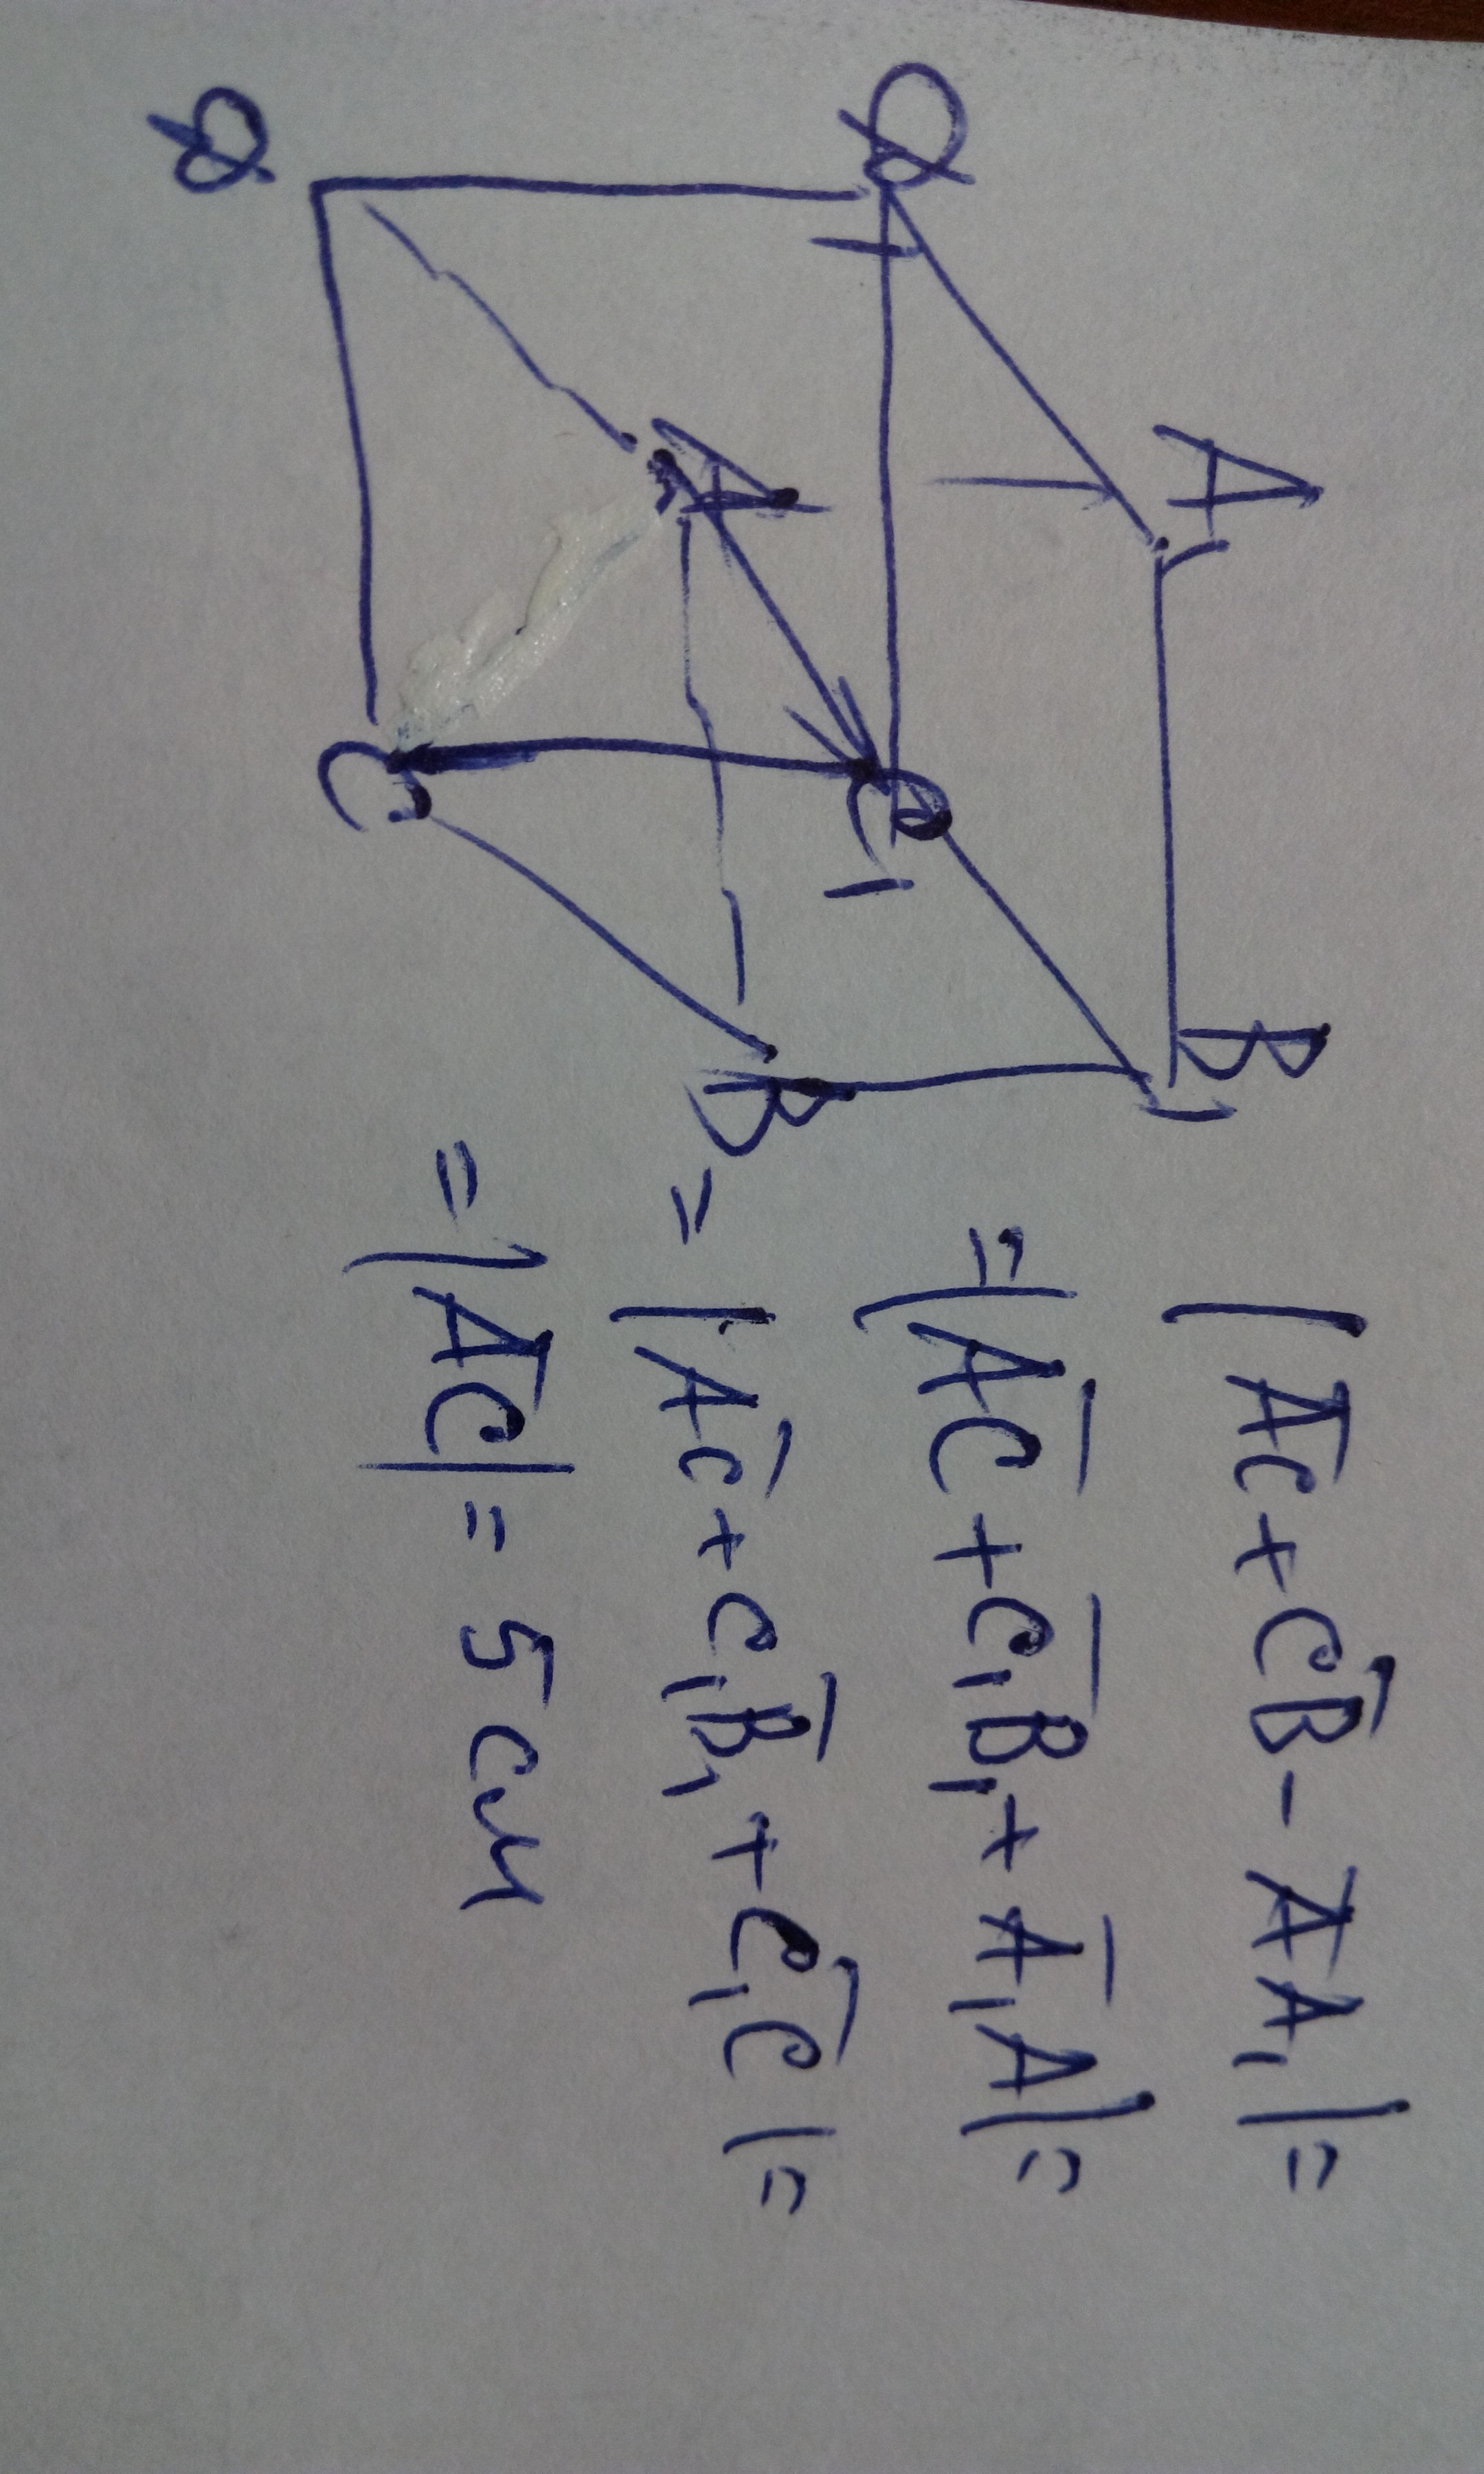 A₁ B₁
D₁ C₁
A B
D C
|A̅C̅ + C̅B̅ - A̅A̅₁| =
= |A̅C̅ + C̅₁B̅₁ + A̅₁A̅| =
= |A̅C̅ + C̅₁B̅₁ + C̅₁C̅| =
= |A̅C̅| = 5 см